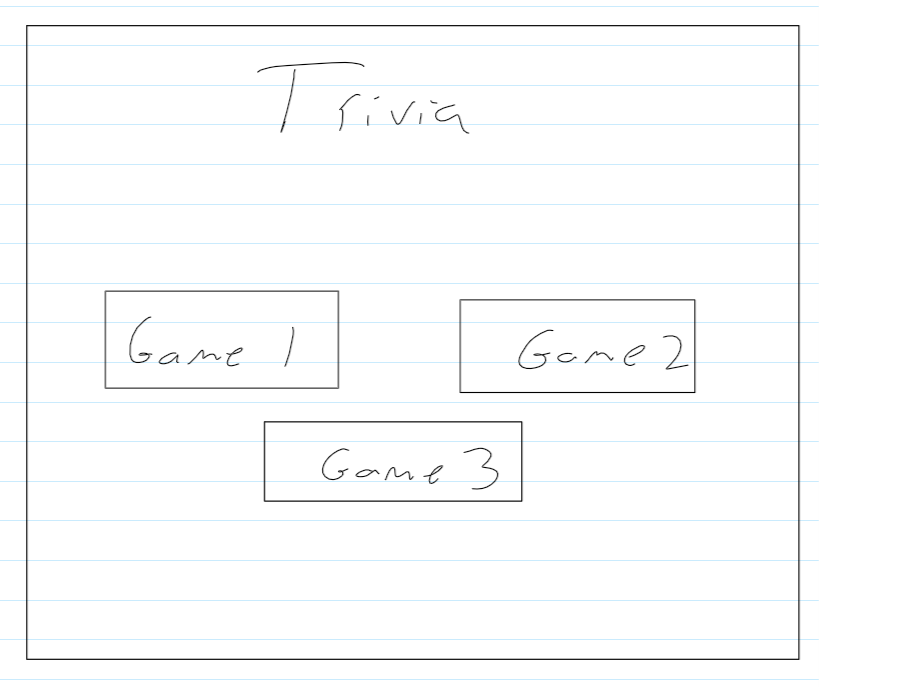 Trivia
Game 1
Game 2
Game 3